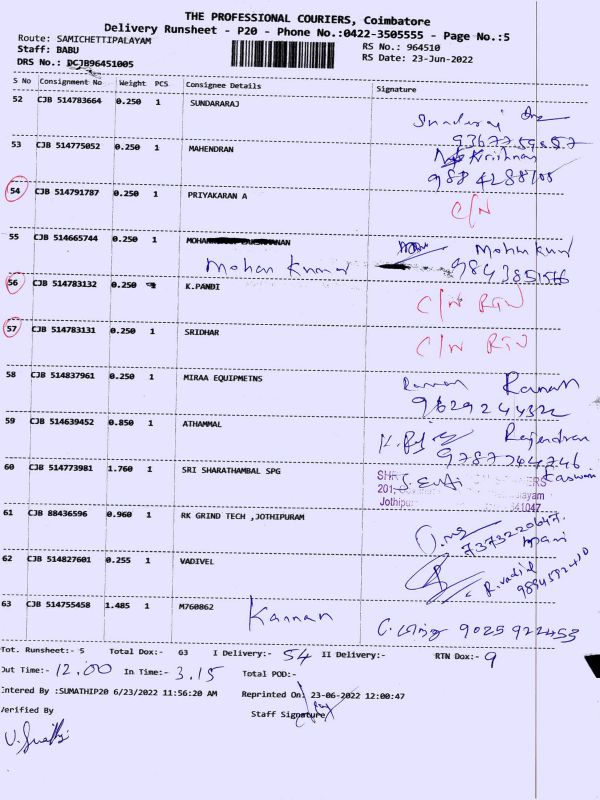 THE PROFESSIONAL COURIERS, Coimbatore
Delivery Runsheet - P20 - Phone No.:0422-3505555 - Page No.:5
Route: SAMICHETTIPALAYAM RS No.: 964510
Staff: BABU RS Date: 23-Jun-2022
DRS No.: DCJB96451005
S No Consignment No Weight PCS Consignee Details Signature
52 CJB 514783664 0.250 1 SUNDARARAJ
53 CJB 514775052 0.250 1 MAHENDRAN
Krishnan
54 CJB 514791787 0.250 1 PRIYAKARAN A C/N
55 CJB 514665744 0.250 1
Mohan Kumar
56 CJB 514783132 0.250 K.PANDI C/N RTN
57 CJB 514783131 0.250 1 SRIDHAR C/N RTN
58 CJB 514837961 0.250 1 MIRAA EQUIPMETNS Raman
59 CJB 514639452 0.850 1 ATHAMMAL Rajendran
60 CJB 514773981 1.760 1 SRI SHARATHAMBAL SPG
201,
61 CJB 88436596 0.960 1 RK GRIND TECH ,JOTHIPURAM
62 CJB 514827601 0.255 1 VADIVEL
63 CJB 514755458 1.485 1 M760862 Kannan 9025922453
Tot. Runsheet:- 5 Total Dox:- 63 I Delivery:- 54 II Delivery:- RTN Dox:- 9
Out Time:- 12.00 In Time:- 3.15 Total POD:-
Entered By :SUMATHIP20 6/23/2022 11:56:20 AM Reprinted On: 23-06-2022 12:00:47
Verified By Staff Signature